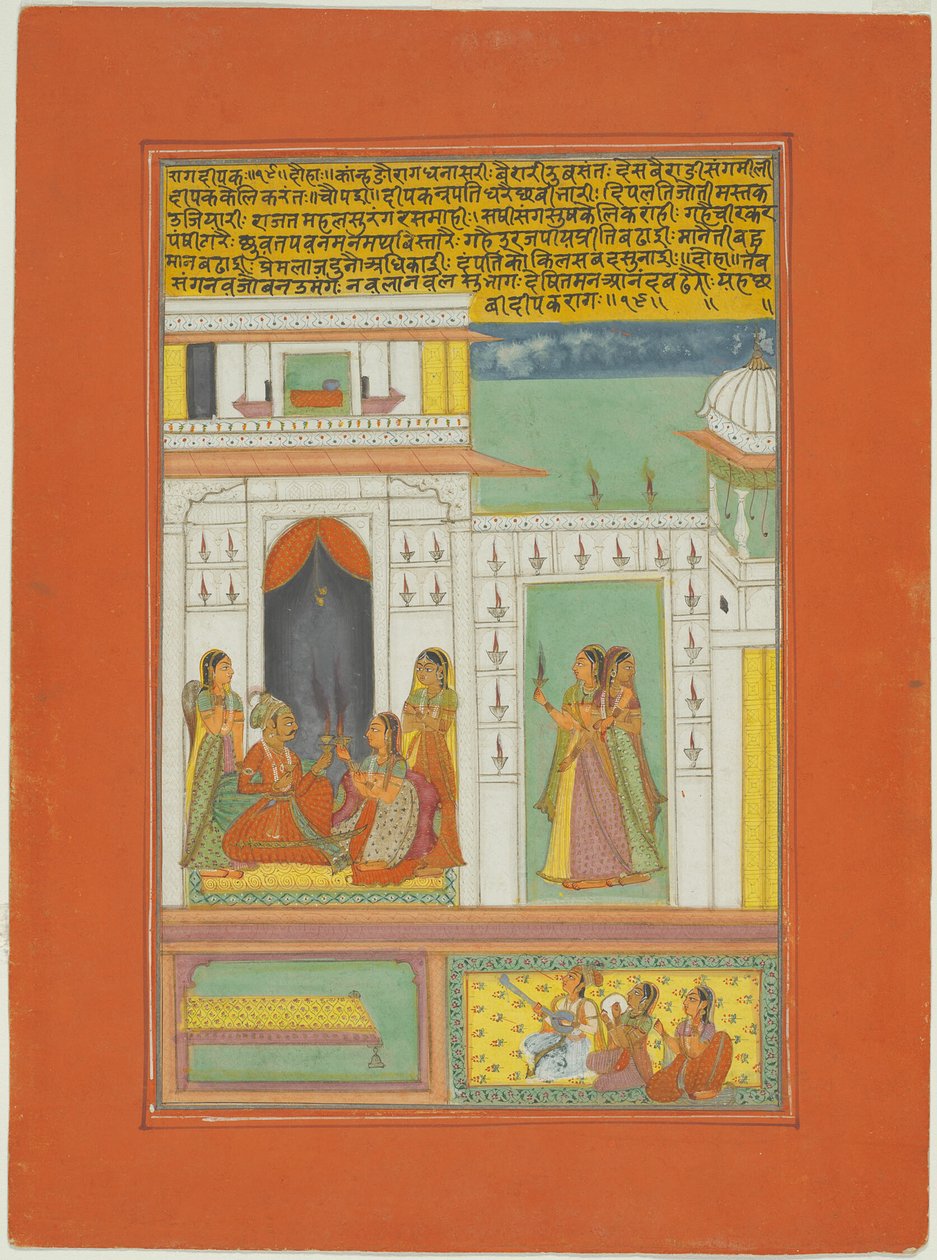 रागदीपक॥१९॥दोहा॥कांन्हडौरागधनासरीः बैरारीरुबसंतः देसबैराडीसंगमीली
दीपककेलिकरंतः॥चौपडी॥दीपकनृपतिधरैछबीभारीः दिपलतिजोतीमस्तक
उजियारीः राजतमहलसुरंगरसमाहीः सषीसंगसुषकेलिकराहीः गहैचीरकर
पंषीढारैः पवनमनमथबिस्तारैः गहैउरजपीयप्रीतिबढाईः मानैतीबहु
मानबढाईः प्रेमलाजदुनौअधिकाईः दंपतिकोकिलसबदसुनाईः॥दोहा॥
संगनवजोबनउमंगः नवलानवलसुभागः देषितमनआनंदबढैः यहछ
बीदीपकरागः॥१९॥ ॥ ॥